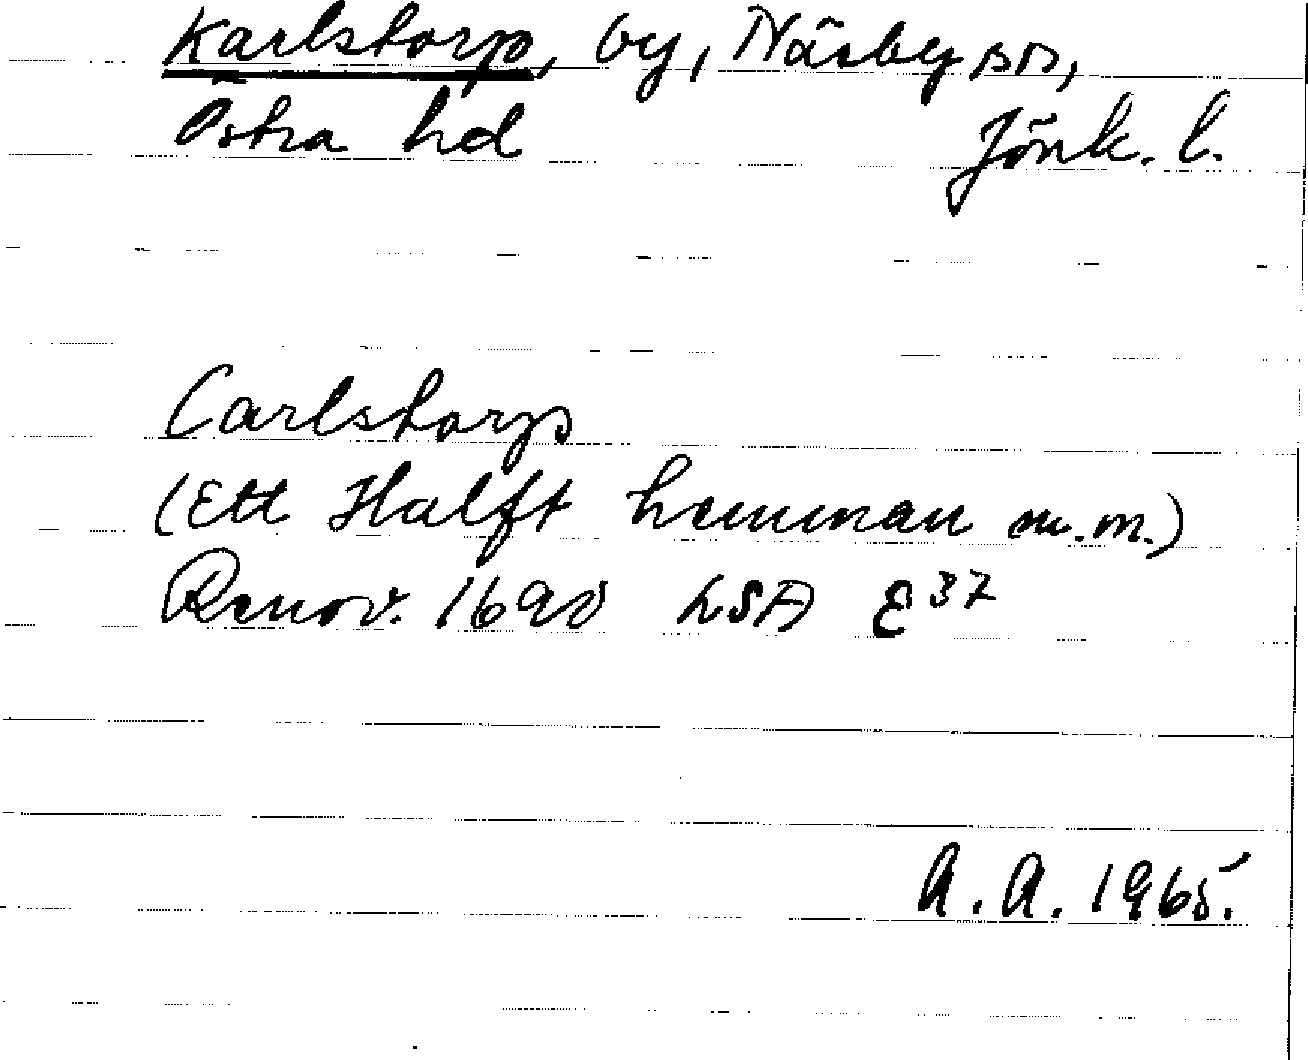 Karlstorp, by, Näsby sn,
Östra hd Jönk. l.
Carlstorp
(Ett Halft hemman m.m.)
Renov. 1690 LSA E37
A.A. 1965.